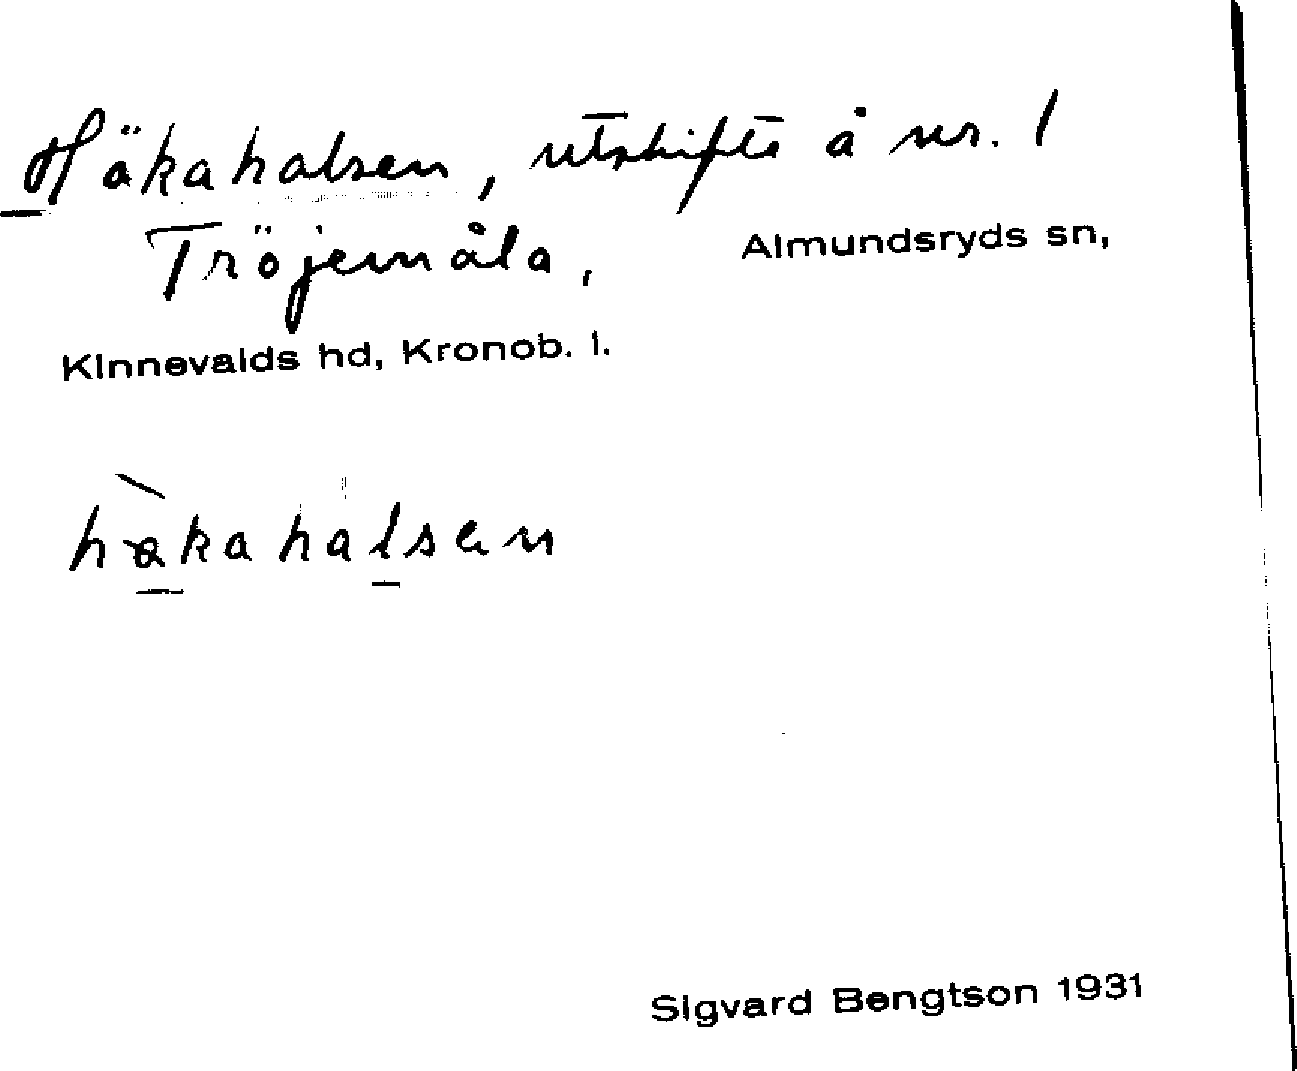 Häkahalsen, utskifte å nr. 1
Tröjemåla, Almundsryds sn,
Kinnevalds hd, Kronob. l.
hàkahalsen
Sigvard Bengtson 1931